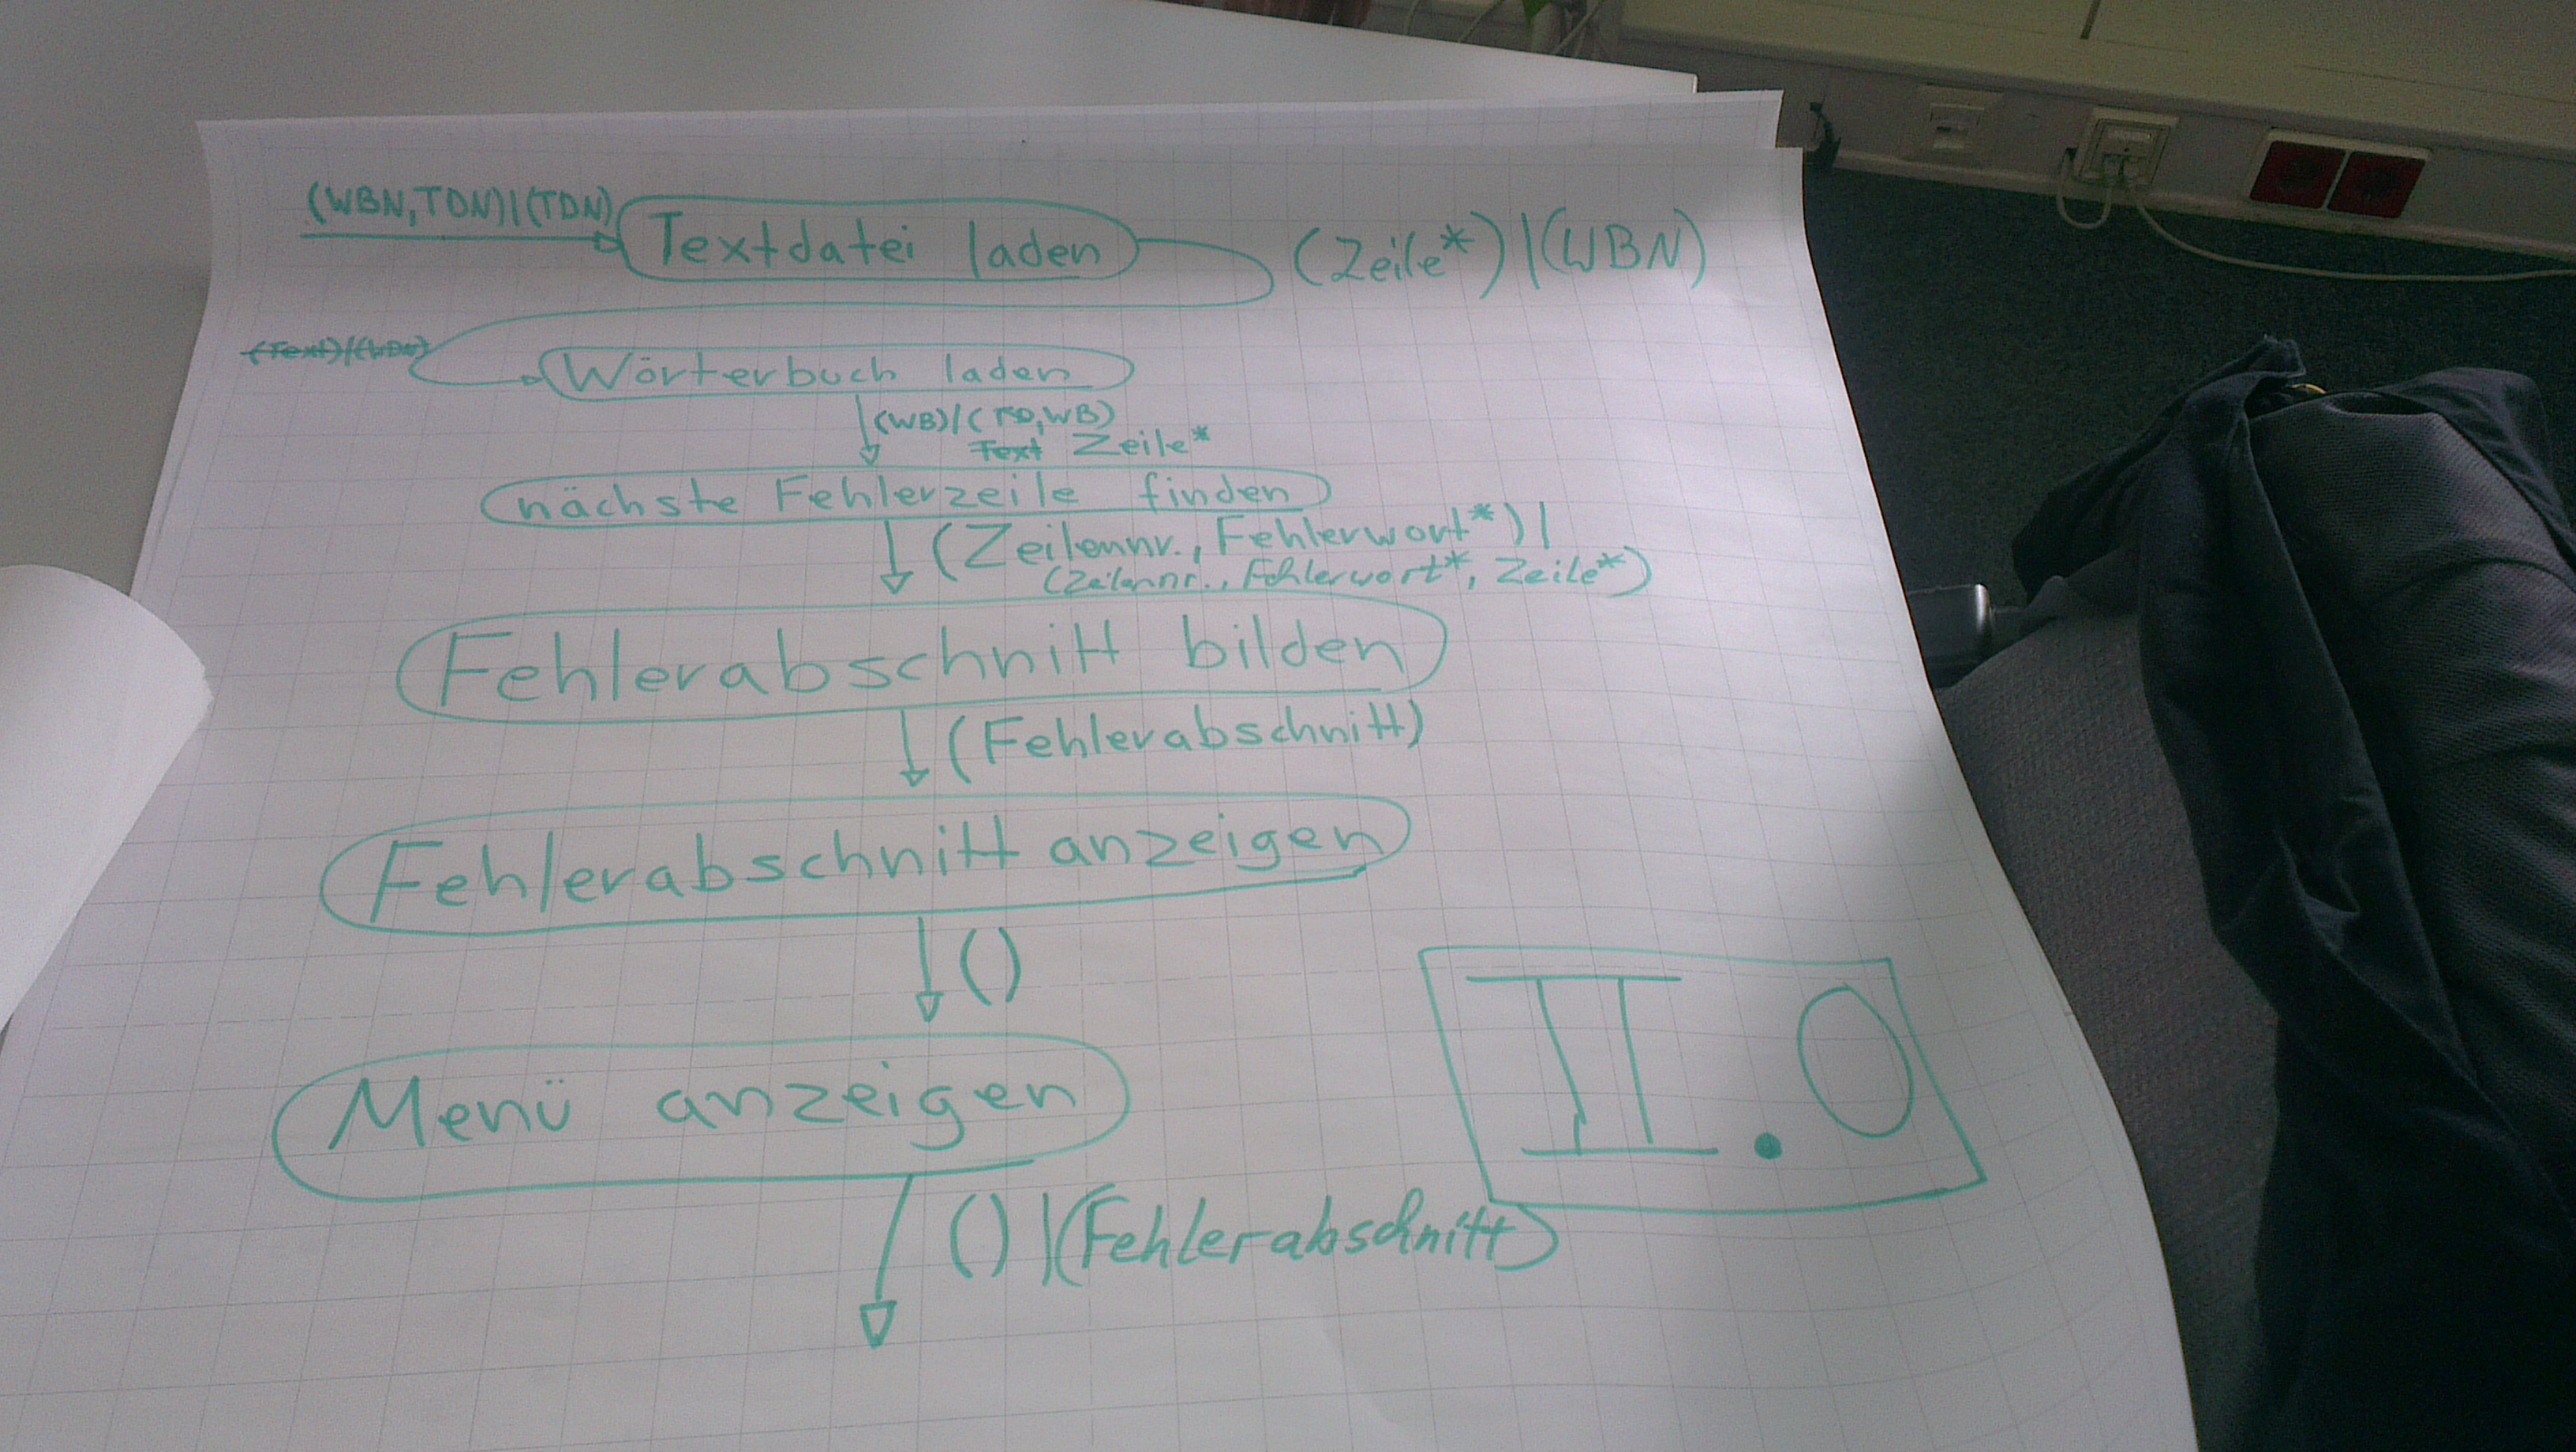 (WBN,TDN)|(TDN)
Textdatei laden
(Zeile*)|(WBN)
(Text)|(WBN)
Wörterbuch laden
(WB)|(TD,WB)
Text Zeile*
nächste Fehlerzeile finden
(Zeilennr., Fehlerwort*)|
(Zeilennr., Fehlerwort*, Zeile*)
Fehlerabschnitt bilden
(Fehlerabschnitt)
Fehlerabschnitt anzeigen
()
Menü anzeigen
II.0
()|(Fehlerabschnitt)